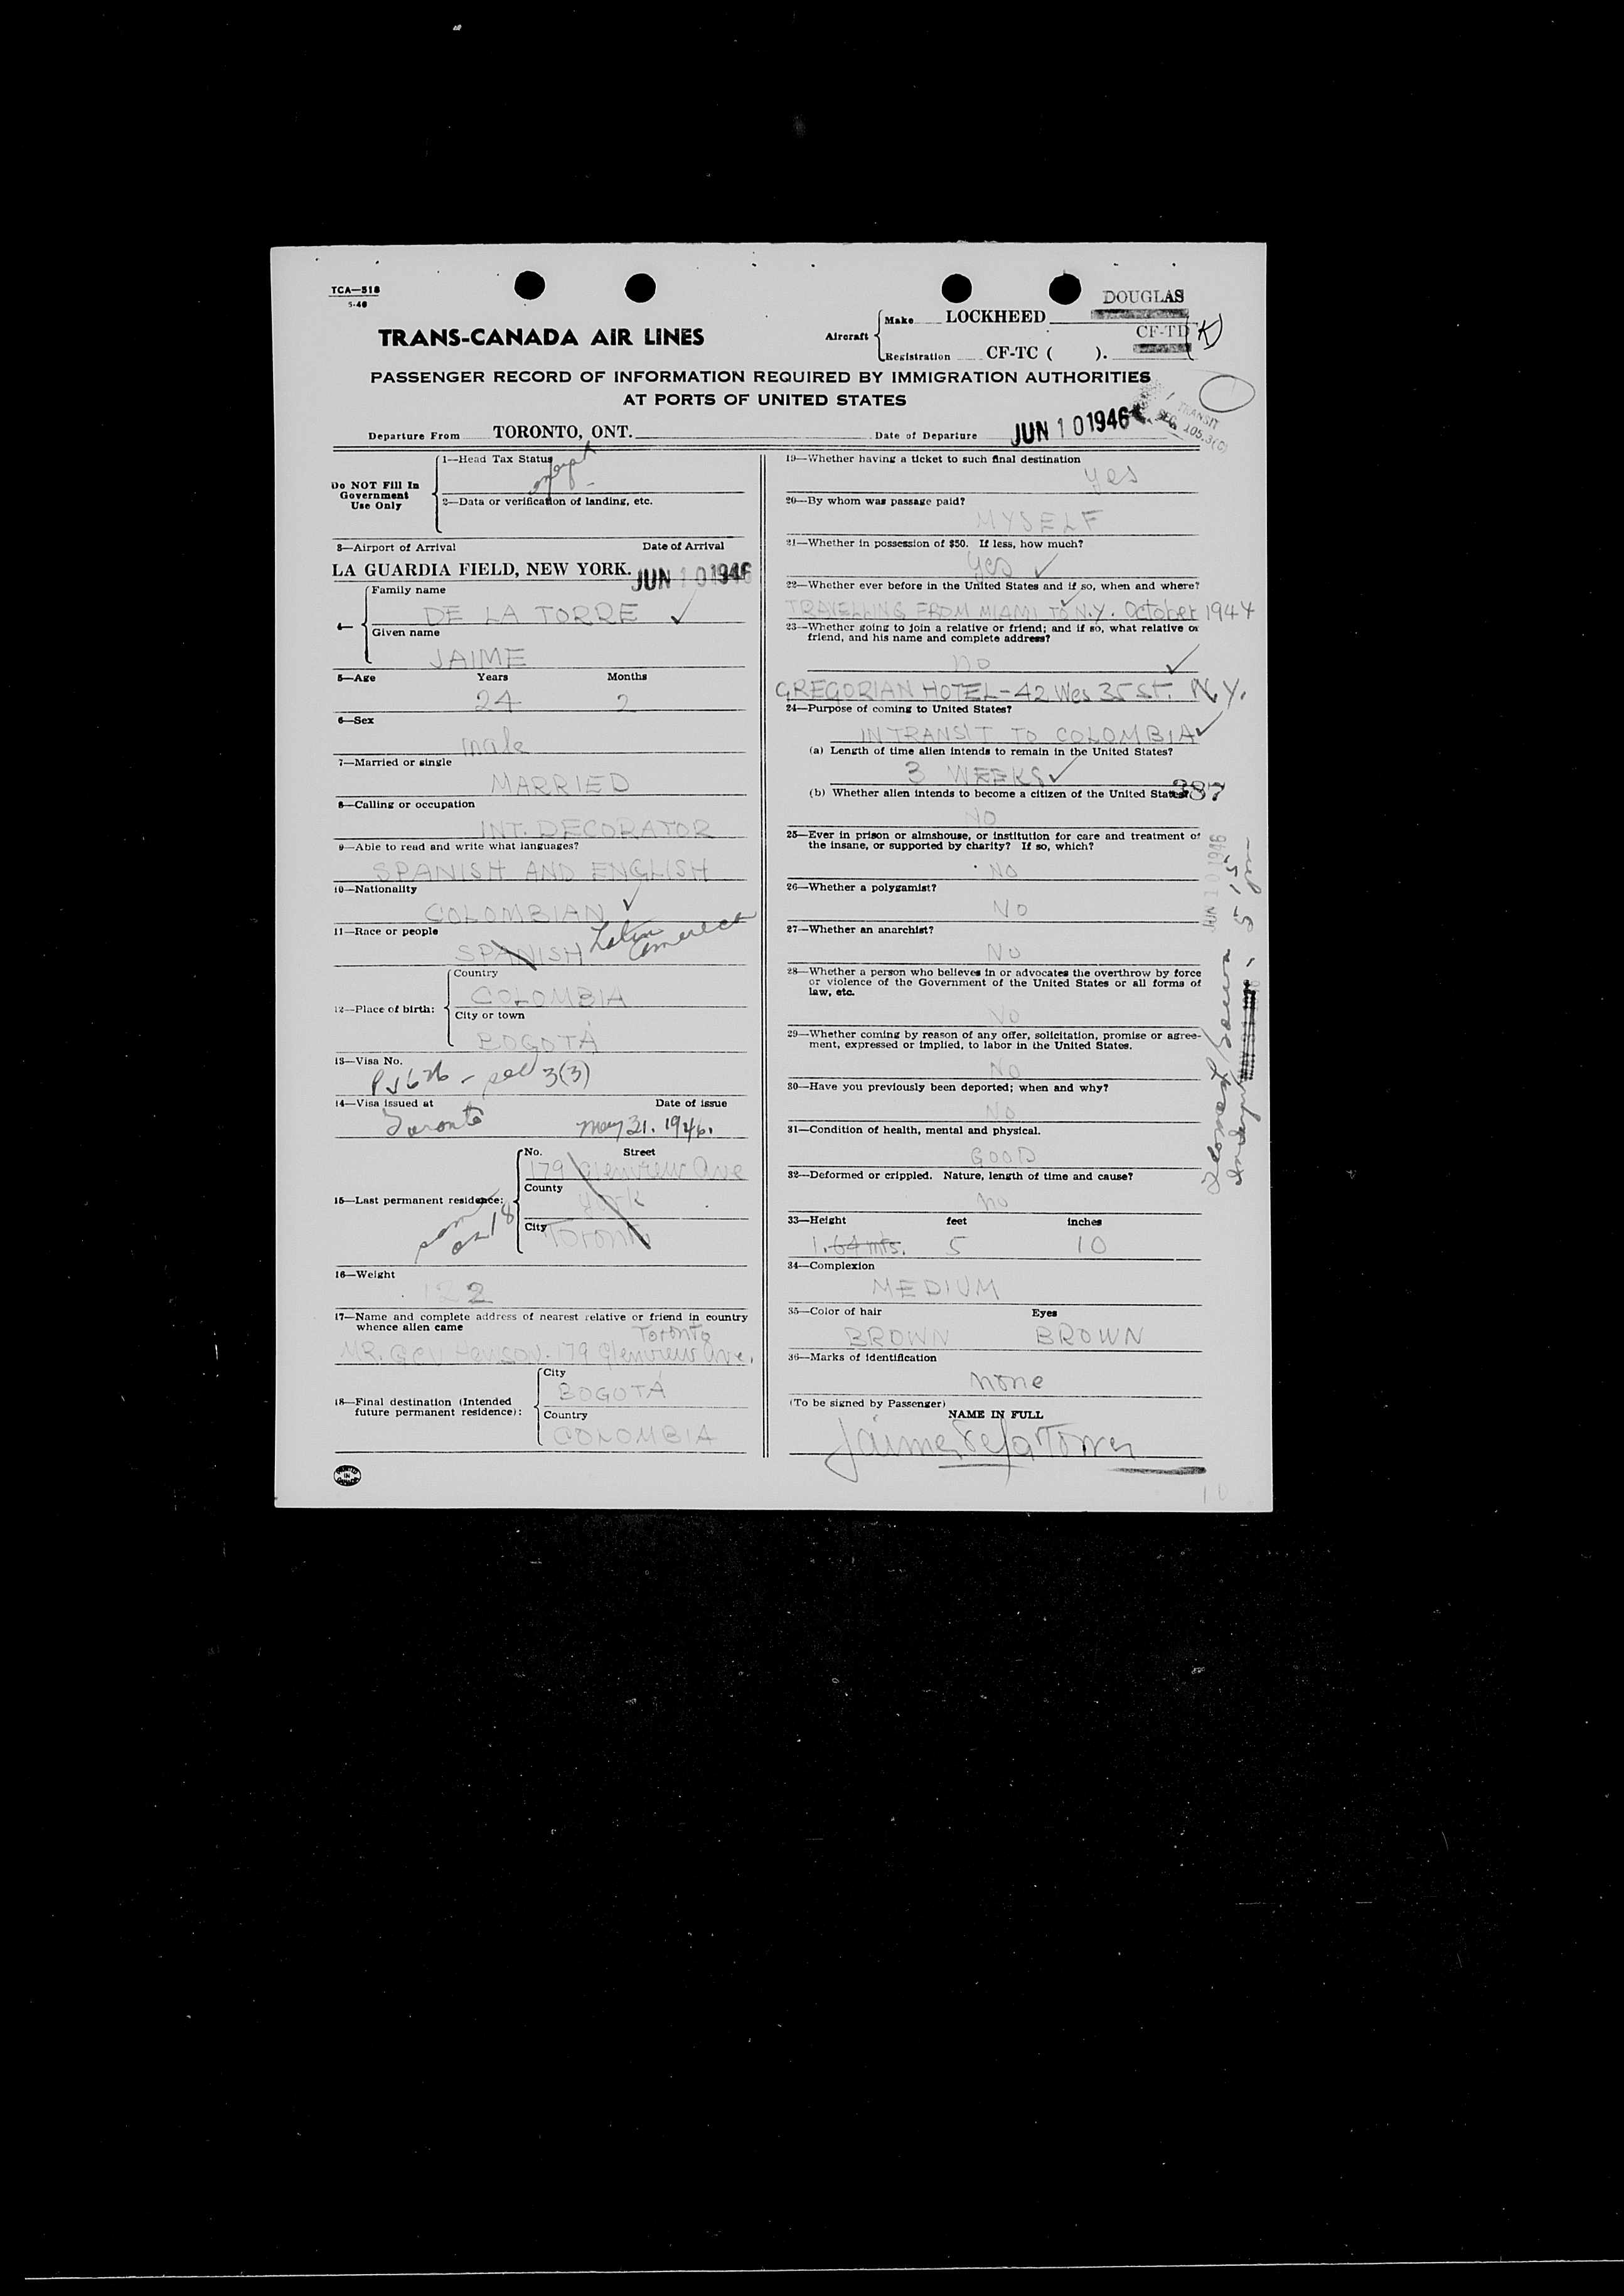 TCA—518
5-46
TRANS-CANADA AIR LINES
Aircraft
Make LOCKHEED
DOUGLAS
Registration CF-TC ( ).
CF-TD (K)
PASSENGER RECORD OF INFORMATION REQUIRED BY IMMIGRATION AUTHORITIES
AT PORTS OF UNITED STATES
TRANSIT
SEC. 105.3(C)
Departure From TORONTO, ONT.
Date of Departure JUN 10 1946
Do NOT Fill In
Government
Use Only
1—Head Tax Status
2—Data or verification of landing, etc.
3—Airport of Arrival Date of Arrival
LA GUARDIA FIELD, NEW YORK. JUN 10 1946
4—
Family name
DE LA TORRE ✓
Given name
JAIME
5—Age Years Months
24 2
6—Sex
male
7—Married or single
MARRIED
8—Calling or occupation
INT. DECORATOR
9—Able to read and write what languages?
SPANISH AND ENGLISH
10—Nationality
COLOMBIAN ✓
11—Race or people
SPANISH Latin American
12—Place of birth:
Country
COLOMBIA
City or town
BOGOTÁ
13—Visa No.
3(3)
14—Visa issued at Date of issue
Toronto May 31. 1946.
15—Last permanent residence:
No. Street
179 Glenview Ave
County
York
City
Toronto
same as 18
16—Weight
122
17—Name and complete address of nearest relative or friend in country
whence alien came
Toronto
MR. 179 Glenview Ave.
18—Final destination (Intended
future permanent residence):
City
BOGOTÁ
Country
COLOMBIA
PRINTED
IN
CANADA
19—Whether having a ticket to such final destination
yes
20—By whom was passage paid?
MYSELF
21—Whether in possession of $50. If less, how much?
yes ✓
22—Whether ever before in the United States and if so, when and where?
TRAVELLING FROM MIAMI TO N.Y. October 1944
23—Whether going to join a relative or friend; and if so, what relative or
friend, and his name and complete address?
no ✓
GREGORIAN HOTEL-42 Wes 35 St. N.Y.
24—Purpose of coming to United States?
IN TRANSIT TO COLOMBIA ✓
(a) Length of time alien intends to remain in the United States?
3 WEEKS ✓
(b) Whether alien intends to become a citizen of the United States?
387
NO
25—Ever in prison or almshouse, or institution for care and treatment of
the insane, or supported by charity? If so, which?
NO
26—Whether a polygamist?
NO
27—Whether an anarchist?
NO
28—Whether a person who believes in or advocates the overthrow by force
or violence of the Government of the United States or all forms of
law, etc.
NO
29—Whether coming by reason of any offer, solicitation, promise or agree-
ment, expressed or implied, to labor in the United States.
NO
30—Have you previously been deported; when and why?
NO
31—Condition of health, mental and physical.
GOOD
32—Deformed or crippled. Nature, length of time and cause?
no
33—Height feet inches
1.64 mts. 5 10
34—Complexion
MEDIUM
35—Color of hair Eyes
BROWN BROWN
36—Marks of identification
none
(To be signed by Passenger)
NAME IN FULL
Jaime De La Torre
JUN 10 1946